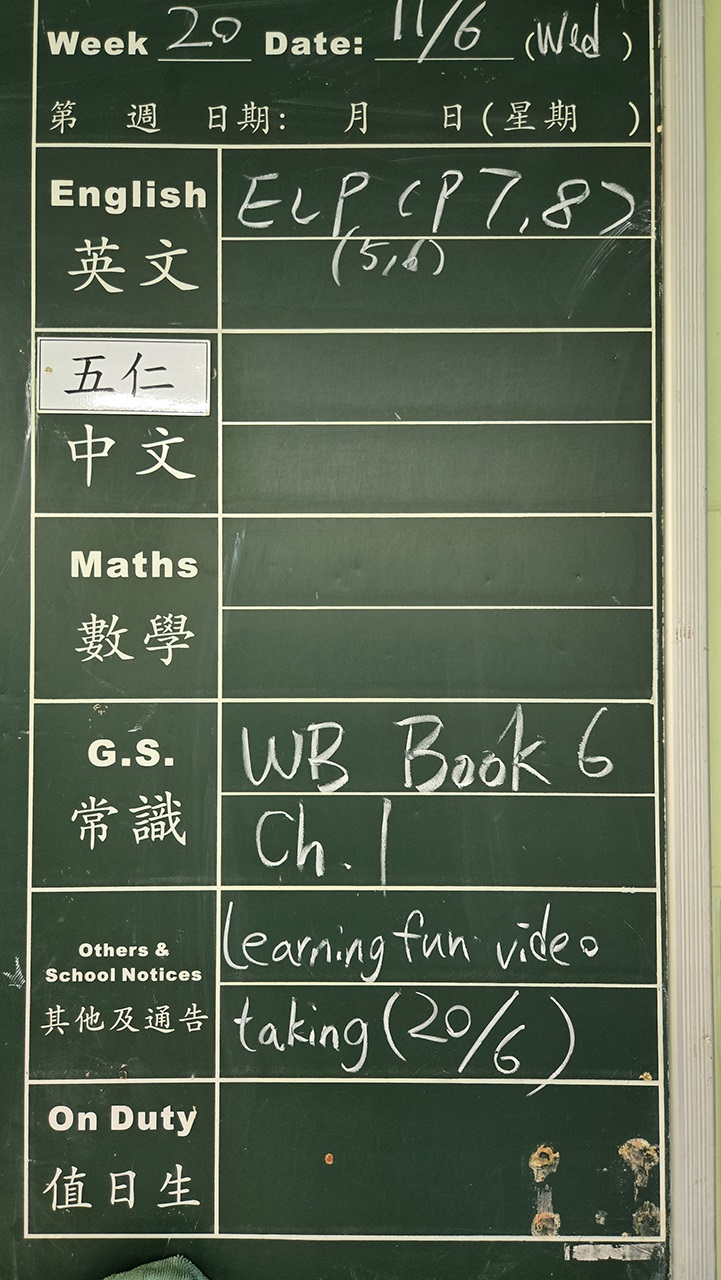 Week 20 Date: 11/6 (Wed)
第 週 日期: 月 日(星期 )
English ELP (P7,8)
英文 (5,6)
五仁
中文
Maths
數學
G.S. WB Book 6
常識 Ch.1
Others & Learning fun video
School Notices
其他及通告 taking (20/6)
On Duty
值日生